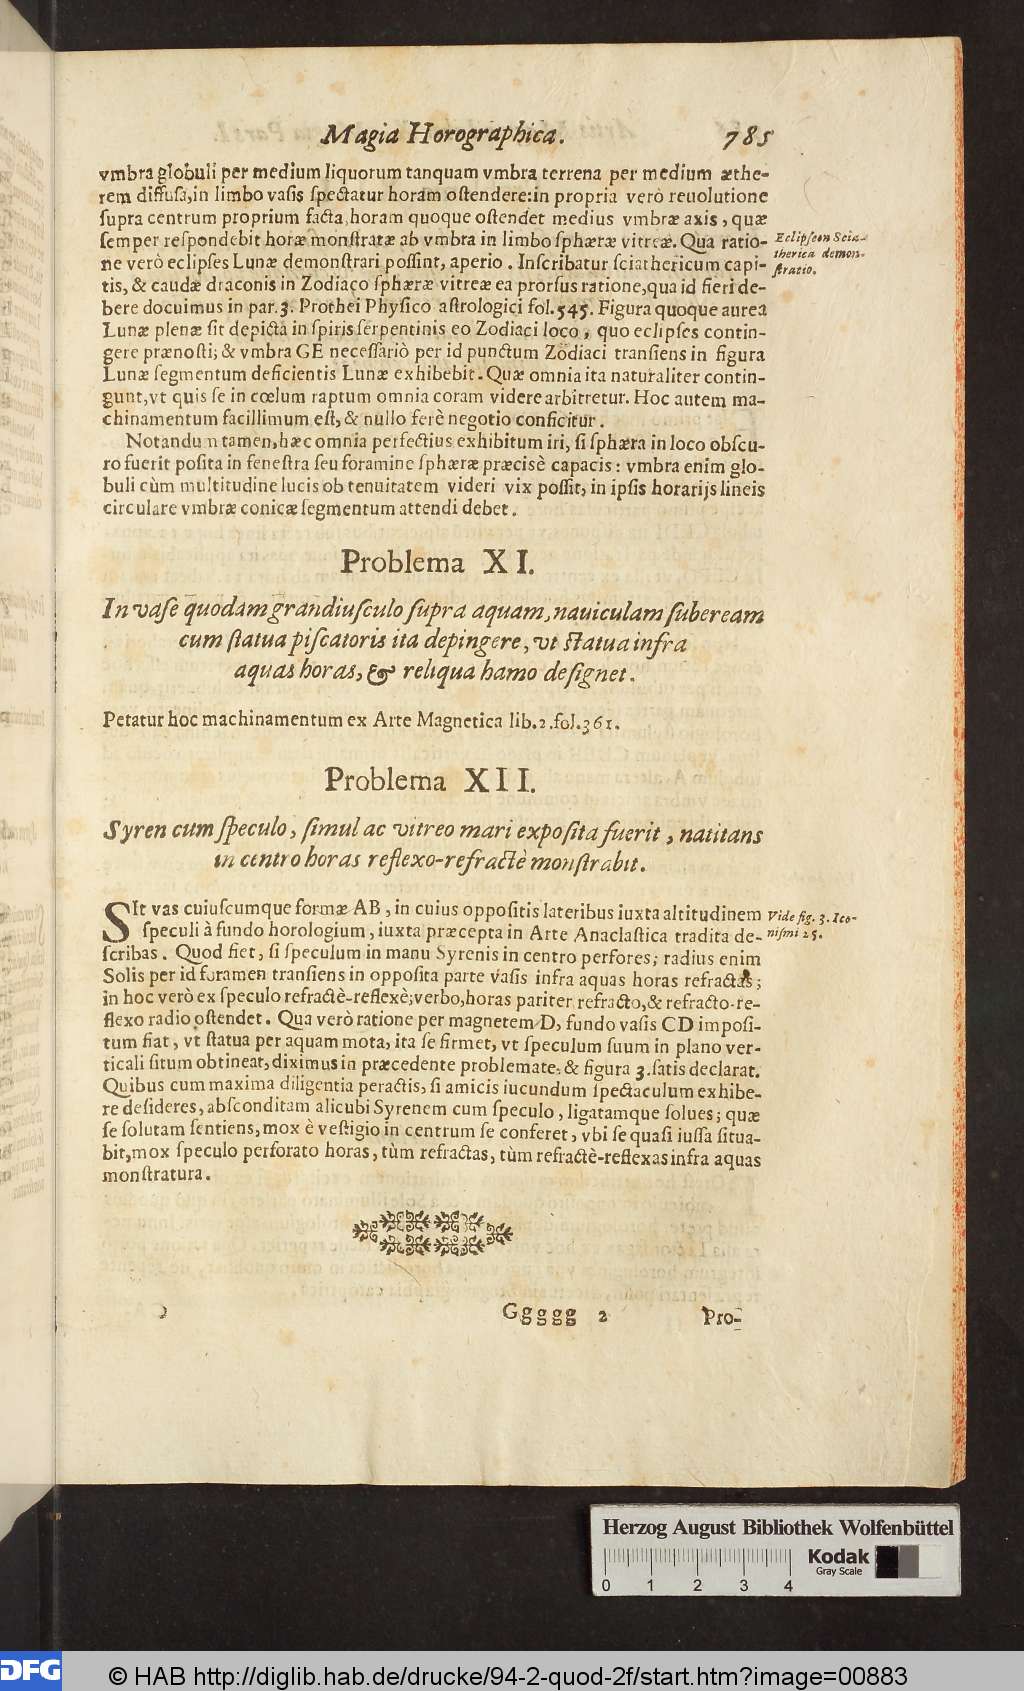 Magia Horographica. 785
vmbra globuli per medium liquorum tanquam vmbra terrena per medium æthe-
rem diffusa, in limbo vasis spectatur horam ostendere: in propria verò reuolutione
supra centrum proprium facta, horam quoque ostendet medius vmbræ axis, quæ
semper respondebit horæ monstratæ ab vmbra in limbo sphæræ vitreæ. Qua ratio-
ne verò eclipses Lunæ demonstrari possint, aperio. Inscribatur sciathericum capi-
tis, & caudæ draconis in Zodiaco sphæræ vitreæ ea prorsus ratione, qua id fieri de-
bere docuimus in par. 3. Prothei Physico astrologici fol. 545. Figura quoque aurea
Lunæ plenæ sit depicta in spiris serpentinis eo Zodiaci loco, quo eclipses contin-
gere prænosti; & vmbra GE necessariò per id punctum Zodiaci transiens in figura
Lunæ segmentum deficientis Lunæ exhibebit. Quæ omnia ita naturaliter contin-
gunt, vt quis se in cœlum raptum omnia coram videre arbitretur. Hoc autem ma-
chinamentum facillimum est, & nullo ferè negotio conficitur.
Eclipseon Scia-
therica demon-
stratio.
Notandum tamen, hæc omnia perfectius exhibitum iri, si sphæra in loco obscu-
ro fuerit posita in fenestra seu foramine sphæræ præcisè capacis: vmbra enim glo-
buli cùm multitudine lucis ob tenuitatem videri vix possit, in ipsis horarijs lineis
circulare vmbræ conicæ segmentum attendi debet.
Problema XI.
In vase quodam grandiusculo supra aquam, nauiculam subeream
cum statua piscatoris ita depingere, vt statua infra
aquas horas, & reliqua hamo designet.
Petatur hoc machinamentum ex Arte Magnetica lib. 2. fol. 361.
Problema XII.
Syren cum speculo, simul ac vitreo mari exposita fuerit, natitans
in centro horas reflexo-refractè monstrabit.
SIt vas cuiuscumque formæ AB, in cuius oppositis lateribus iuxta altitudinem
speculi à fundo horologium, iuxta præcepta in Arte Anaclastica tradita de-
scribas. Quod fiet, si speculum in manu Syrenis in centro perfores; radius enim
Solis per id foramen transiens in opposita parte vasis infra aquas horas refractas;
in hoc verò ex speculo refractè-reflexè; verbo, horas pariter refracto, & refracto-re-
flexo radio ostendet. Qua verò ratione per magnetem D, fundo vasis CD imposi-
tum fiat, vt statua per aquam mota, ita se firmet, vt speculum suum in plano ver-
ticali situm obtineat, diximus in præcedente problemate, & figura 3. satis declarat.
Quibus cum maxima diligentia peractis, si amicis iucundum spectaculum exhibe-
re desideres, absconditam alicubi Syrenem cum speculo, ligatamque solues; quæ
se solutam sentiens, mox è vestigio in centrum se conferet, vbi se quasi iussa situa-
bit, mox speculo perforato horas, tùm refractas, tùm refractè-reflexas infra aquas
monstratura.
Vide fig. 3. Ico-
nismi 25.
Ggggg 2 Pro-
Herzog August Bibliothek Wolfenbüttel
Kodak
Gray Scale
0 1 2 3 4
DFG © HAB http://diglib.hab.de/drucke/94-2-quod-2f/start.htm?image=00883